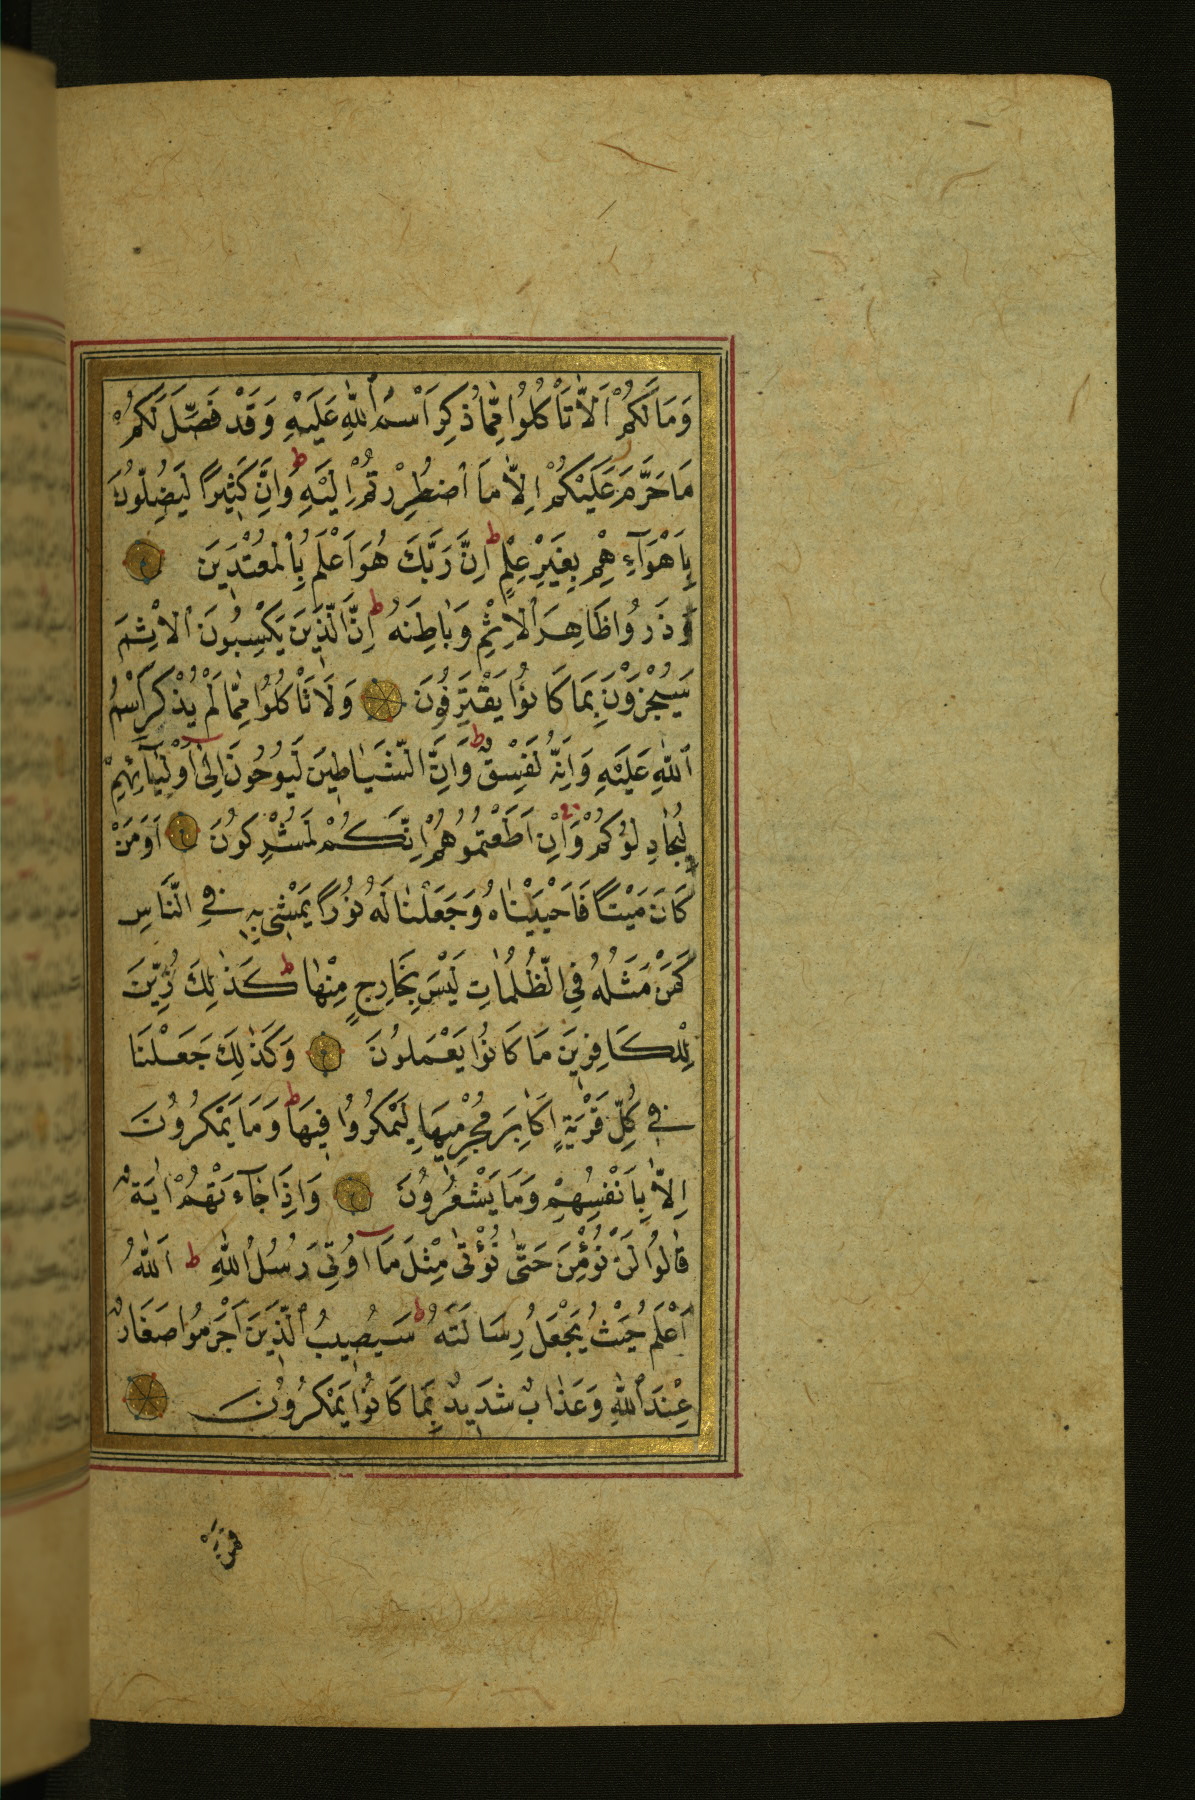 وَمَا لَكُمْ اَلَّا تَأْكُلُوا مِمَّا ذُكِرَ اسْمُ اللّٰهِ عَلَيْهِ وَقَدْ فَصَّلَ لَكُمْ
مَا حَرَّمَ عَلَيْكُمْ اِلَّا مَا اضْطُرِرْتُمْ اِلَيْهِ ط وَاِنَّ كَثِيرًا لَيُضِلُّونَ
بِاَهْوَآءِهِمْ بِغَيْرِ عِلْمٍ ط اِنَّ رَبَّكَ هُوَ اَعْلَمُ بِالْمُعْتَدِينَ
وَذَرُوا ظَاهِرَ الْاِثْمِ وَبَاطِنَهُ ط اِنَّ الَّذِينَ يَكْسِبُونَ الْاِثْمَ
سَيُجْزَوْنَ بِمَا كَانُوا يَقْتَرِفُونَ وَلَا تَأْكُلُوا مِمَّا لَمْ يُذْكَرِ اسْمُ
اللّٰهِ عَلَيْهِ وَاِنَّهُ لَفِسْقٌ ط وَاِنَّ الشَّيَاطِينَ لَيُوحُونَ اِلٰى اَوْلِيَآئِهِمْ
لِيُجَادِلُوكُمْ وَاِنْ اَطَعْتُمُوهُمْ اِنَّكُمْ لَمُشْرِكُونَ اَوَمَنْ
كَانَ مَيْتًا فَاَحْيَيْنَاهُ وَجَعَلْنَا لَهُ نُورًا يَمْشِي بِهِ فِي النَّاسِ
كَمَنْ مَثَلُهُ فِي الظُّلُمَاتِ لَيْسَ بِخَارِجٍ مِنْهَا ط كَذٰلِكَ زُيِّنَ
لِلْكَافِرِينَ مَا كَانُوا يَعْمَلُونَ وَكَذٰلِكَ جَعَلْنَا
فِي كُلِّ قَرْيَةٍ اَكَابِرَ مُجْرِمِيهَا لِيَمْكُرُوا فِيهَا ط وَمَا يَمْكُرُونَ
اِلَّا بِاَنْفُسِهِمْ وَمَا يَشْعُرُونَ وَاِذَا جَآءَتْهُمْ اٰيَةٌ
قَالُوا لَنْ نُؤْمِنَ حَتّٰى نُؤْتٰى مِثْلَ مَا اُوتِيَ رُسُلُ اللّٰهِ ط اَللّٰهُ
اَعْلَمُ حَيْثُ يَجْعَلُ رِسَالَتَهُ ط سَيُصِيبُ الَّذِينَ اَجْرَمُوا صَغَارٌ
عِنْدَ اللّٰهِ وَعَذَابٌ شَدِيدٌ بِمَا كَانُوا يَمْكُرُونَ
فَمَنْ